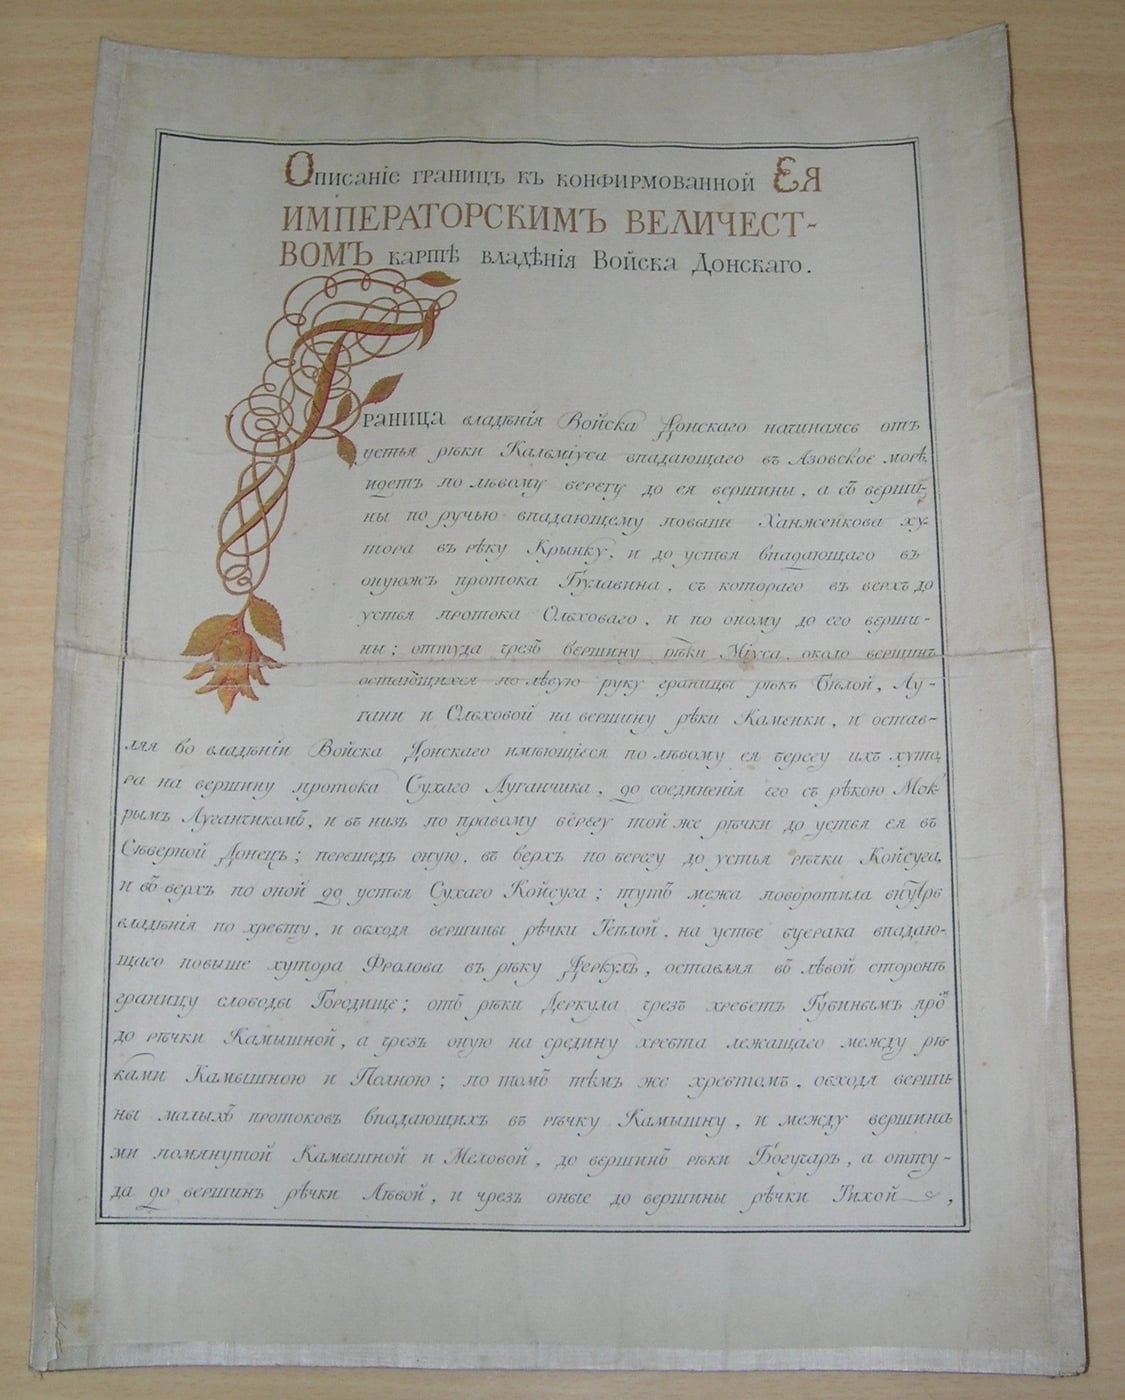 Описаніе границъ къ конфирмованной ЕЯ
ИМПЕРАТОРСКИМЪ ВЕЛИЧЕСТ-
ВОМЪ картѣ владѣнія Войска Донскаго.
Граница владѣнія Войска Донскаго начинаясь отъ
устья рѣки Кальміуса впадающаго въ Азовское морѣ,
идетъ по лѣвому берегу до ея вершины, а съ верши-
ны по ручью впадающему повыше Ханженкова ху-
тора въ рѣку Крынку, и до устья впадающаго въ
оную жъ протока Булавина, съ котораго въ верхъ до
устья протока Ольховаго, и по оному до его верши-
ны; оттуда чрезъ вершину рѣки Міуса, около вершинъ
остающихся по лѣвую руку границы рѣкъ Бѣлой, Лу-
гани и Ольховой на вершину рѣки Каменки, и остав-
ляя во владѣніи Войска Донскаго имѣющіеся по лѣвому ея берегу ихъ хуто
ра на вершину протока Сухаго Луганчика, до соединенія его съ рѣкою Мок-
рымъ Луганчикомъ, и въ низъ по правому берегу той же рѣчки до устья ея въ
Сѣверной Донецъ; перешедъ оную, въ верхъ по берегу до устья рѣчки Койсуга,
и въ верхъ по оной до устья Сухаго Койсуга; тутъ межа поворотила внутрь
владѣнія по хребту, и обходя вершины рѣчки Теплой, на устье буерака впадаю-
щаго повыше хутора Фролова въ рѣку Деркулъ, оставляя въ лѣвой сторонѣ
границу слободы Городище; отъ рѣки Деркула чрезъ хребетъ Губинымъ яромъ
до рѣчки Камышной, а чрезъ оную на средину хребта лежащаго между рѣ-
ками Камышною и Полною; по томъ тѣмъ же хребтомъ, обходя верши-
ны малыхъ протоковъ впадающихъ въ рѣчку Камышну, и между вершина
ми помянутой Камышной и Меловой, до вершинъ рѣки Богучаръ, а отту-
да до вершинъ рѣчки Лѣвой, и чрезъ оные до вершины рѣчки Тихой,